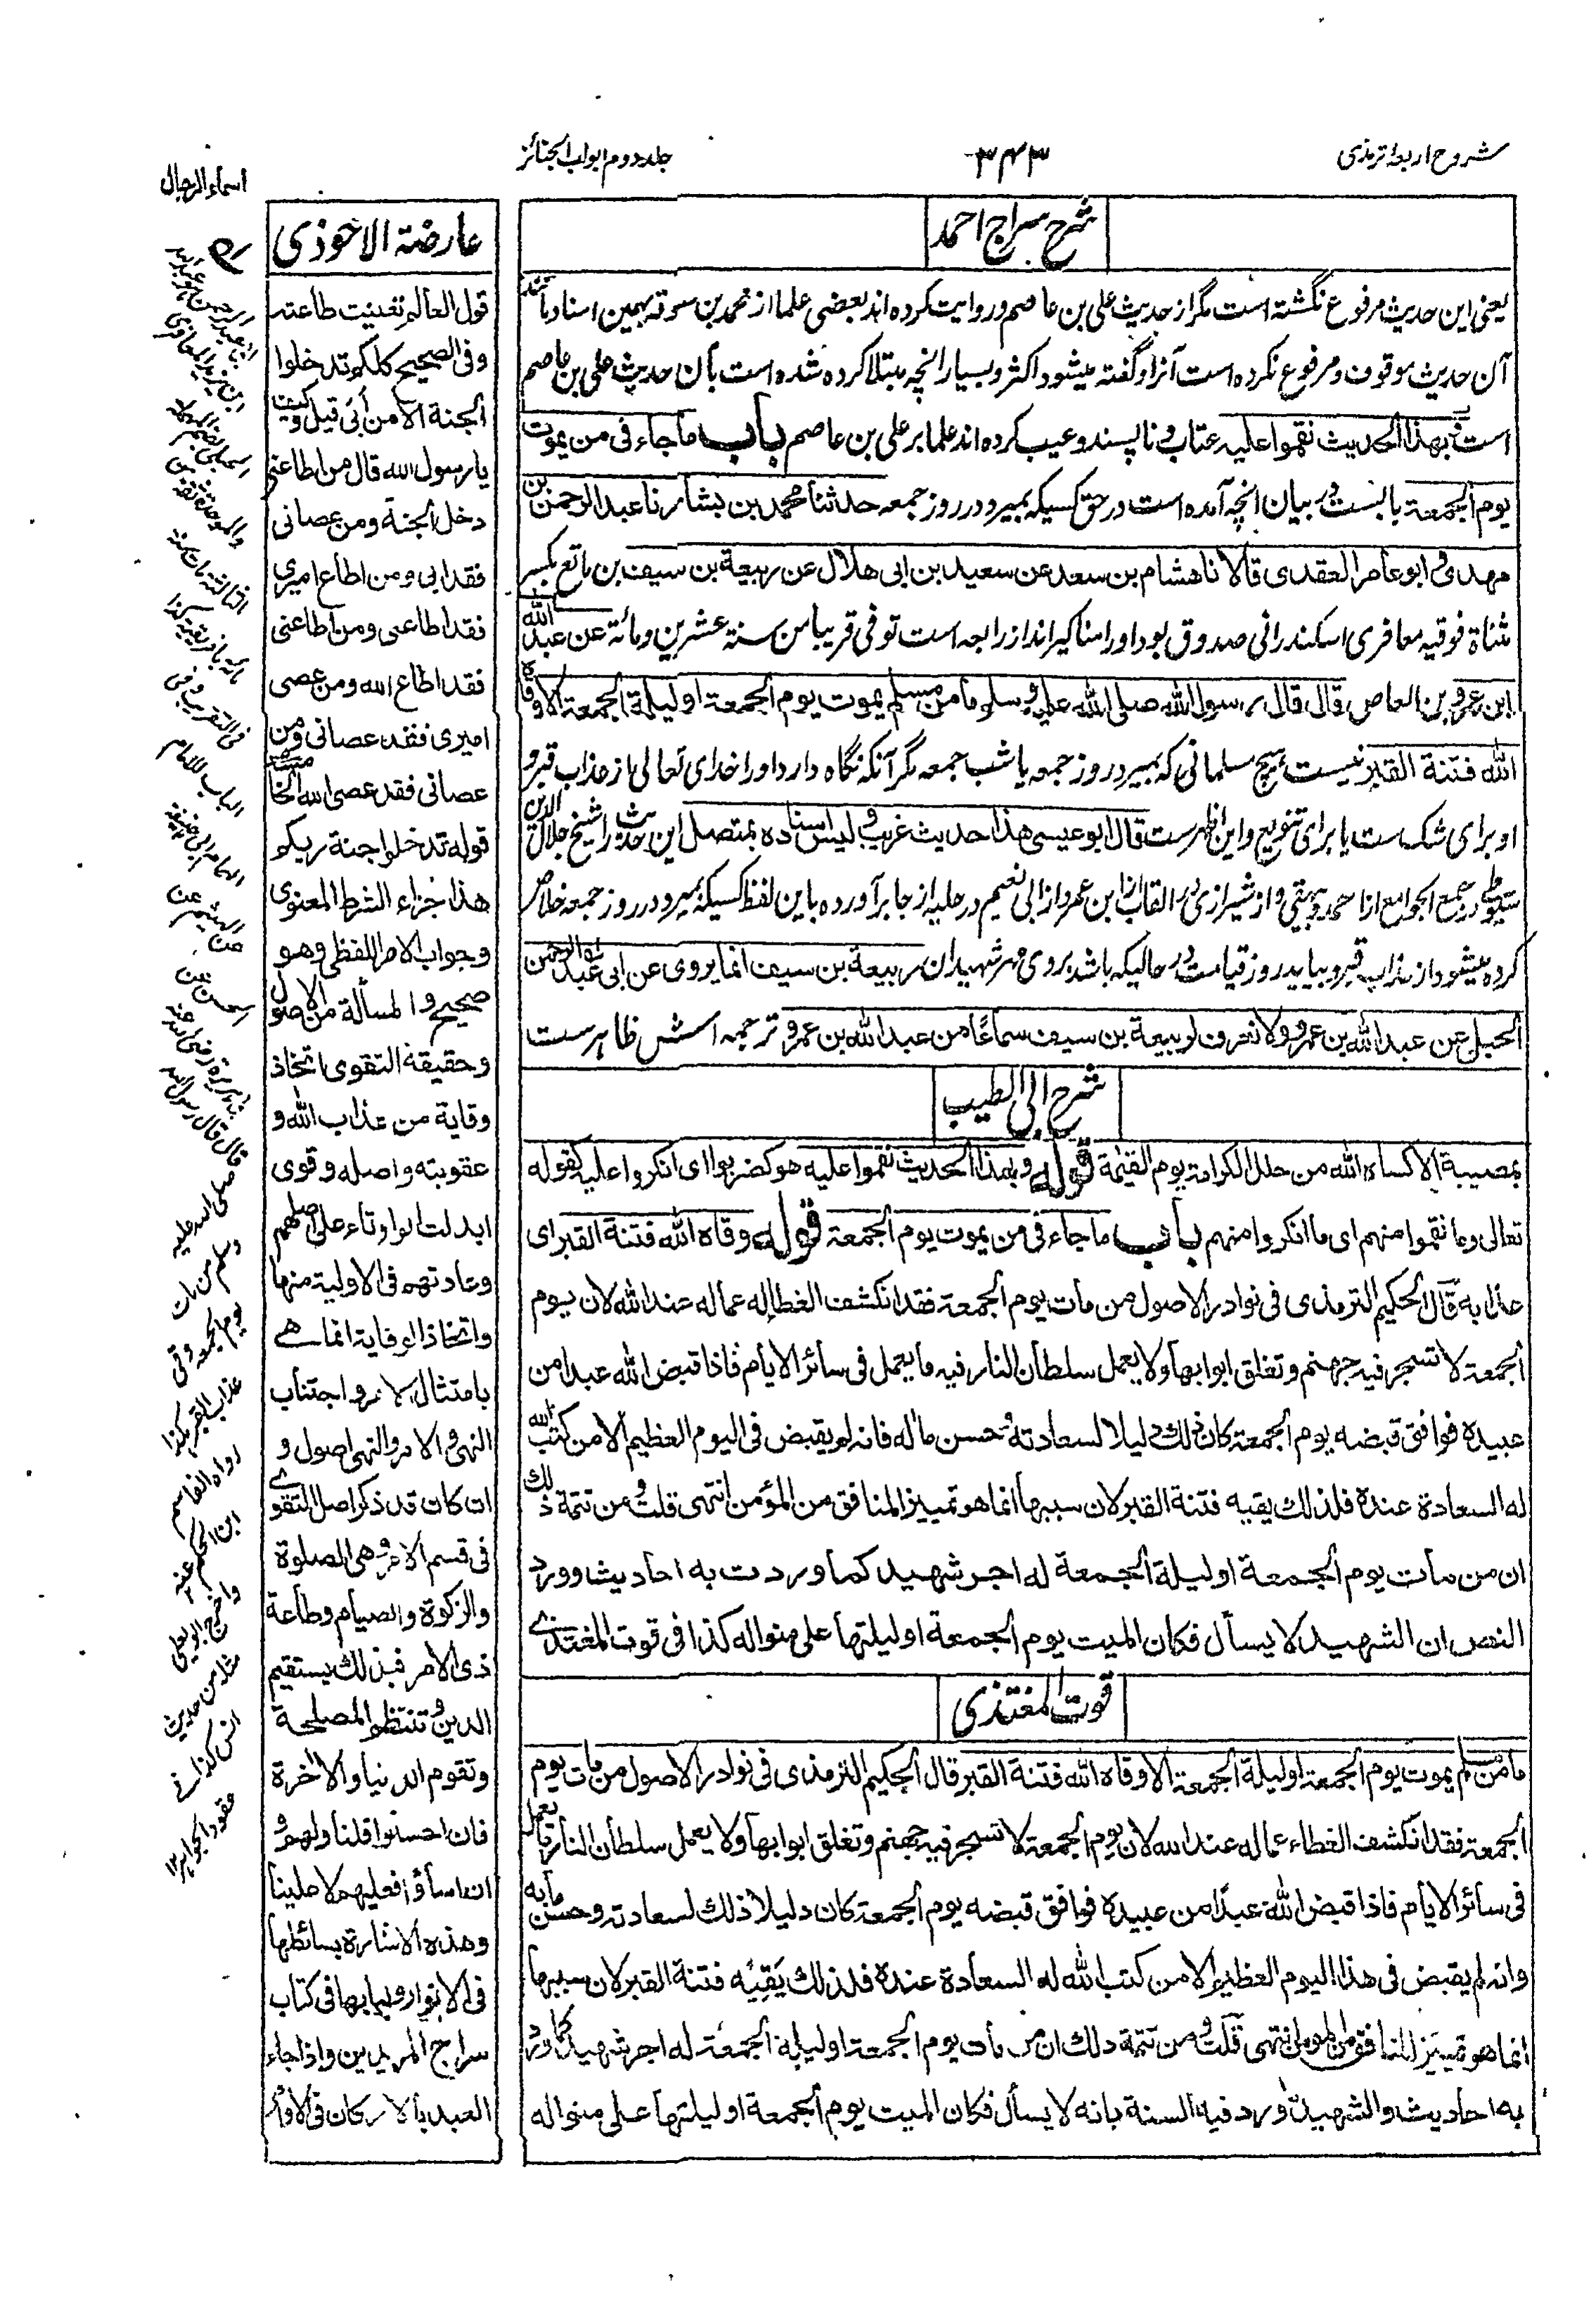 شروح اربعه ترمذی
۳۴۳
جلد دوم ابواب الجنائز
اسماء الرجال
شرح سراج احمد
یعنی این حدیث مرفوع نگشته است مگر از حدیث علی بن عاصم و روایت کرده اند بعضی علما از محمد بن سوقه بهمین اسناد مانند
آن حدیث موقوف و مرفوع نکرده است آنرا و گفته میشود اکثر و بسیار انچه مبتلا کرده شده است بآن حدیث علی بن عاصم
است بهذا الحدیث نقموا علیه عتاب و ناپسند و عیب کرده اند علما بر علی بن عاصم باب ما جاء فی من یموت
یوم الجمعة بابست در بیان انچه آمده است در حق کسیکه بمیرد در روز جمعه حدثنا محمد بن بشار نا عبد الرحمن بن
مهدی و ابو عامر العقدی قالا نا هشام بن سعد عن سعید بن ابی هلال عن ربیعة بن سیف بن ماتع بکسر
مثناة فوقیه معافری اسکندرانی صدوق بود او را مناکیر اند از رابعه است توفی قریبا من سنة عشرین ومائة عن عبد الله
ابن عمرو بن العاص قال قال رسول الله صلی الله علیه وسلم ما من مسلم یموت یوم الجمعة او لیلة الجمعة الا وقاه
الله فتنة القبر نیست هیچ مسلمانی که بمیرد روز جمعه یا شب جمعه مگر آنکه نگاه دارد او را خدای تعالی از عذاب قبر و
او برای شک ست یا برای تنویع و این اظهر ست قال ابو عیسی هذا حدیث غریب و لیس اسناده بمتصل این حدیث را شیخ جلال الدین
سیوطی در جمع الجوامع از احمد و بیهقی و از شیرازی در القاب از ابن عمر و از ابی نعیم در حلیه از جابر آورده باین لفظ کسیکه بمیرد در روز جمعه خلاص
کرده میشود از عذاب قبر و بیاید روز قیامت در حالیکه باشد بروی مهر شهیدان ربیعة بن سیف انما یروی عن ابی عبد الرحمن
الحبلی عن عبد الله بن عمرو ولا نعرف لربیعة بن سیف سماعًا من عبد الله بن عمرو ترجمه اسش ظاهر ست
شرح ابی الطیب
بمصیبة الا کساه الله من حلل الکرامة یوم القیمة قوله و بهذا الحدیث نقموا علیه هو کضربوا ای انکروا علیه کقوله
تعالی وما نقموا منهم ای ما انکروا منهم باب ما جاء فی من یموت یوم الجمعة قوله وقاه الله فتنة القبر ای
عذابه قال الحکیم الترمذی فی نوادر الاصول من مات یوم الجمعة فقد انکشف الغطا له عما له عند الله لان یوم
الجمعة لا تسجر فیه جهنم وتغلق ابوابها ولا یعمل سلطان النار فیه ما یعمل فی سائر الایام فاذا قبض الله عبدا من
عبیده فوافق قبضه یوم الجمعة کان ذلک دلیلا لسعادته وحسن مآله فانه لم یقبض فی الیوم العظیم الا من کتب الله
له السعادة عنده فلذلک یقیه فتنة القبر لان سببها انما هو تمییز المنافق من المؤمن انتهی قلت ومن تتمة ذلک
ان من مات یوم الجمعة او لیلة الجمعة له اجر شهید کما وردت به احادیث وورد
النص ان الشهید لا یسأل فکان المیت یوم الجمعة او لیلتها علی منواله کذا فی قوت المغتذی
قوت المغتذی
ما من مسلم یموت یوم الجمعة او لیلة الجمعة الا وقاه الله فتنة القبر قال الحکیم الترمذی فی نوادر الاصول من مات یوم
الجمعة فقد انکشف الغطاء عما له عند الله لان یوم الجمعة لا تسجر فیه جهنم وتغلق ابوابها ولا یعمل سلطان النار ما یعمل
فی سائر الایام فاذا قبض الله عبدًا من عبیده فوافق قبضه یوم الجمعة کان دلیلا ذلک لسعادته وحسن مآبه
وانه لم یقبض فی هذا الیوم العظیم الا من کتب الله له السعادة عنده فلذلک یَقِیْه فتنة القبر لان سببها
انما هو تمییز المنافق من المومن انتهی قلت ومن تتمة ذلک ان من مات یوم الجمعة او لیلة الجمعة له اجر شهید کما ورد
به احادیث والشهید ورد فیه السنة بانه لا یسأل فکان المیت یوم الجمعة او لیلتها علی منواله
عارضة الاحوذی
قول العالم تعینت طاعته
وفی الصحیح کلکم تدخلوا
الجنة الا من أبی قیل وکیف
یا رسول الله قال من اطاعنی
دخل الجنة ومن عصانی
فقد ابی ومن اطاع امیری
فقد اطاعنی ومن اطاعنی
فقد اطاع الله ومن عصی
امیری فقد عصانی ومن
عصانی فقد عصی الله
قوله تدخلوا جنة ربکم
هذا جزاء الشرط المعنوی
وجواب الامر اللفظی وهو
صحیح والمسألة من الاصول
وحقیقة التقوی اتخاذ
وقایة من عذاب الله و
عقوبته واصله وقوی
ابدلت الواو تاء علی اصلهم
وعادتهم فی الاولیة منها
واتخاذ الوقایة انما هے
بامتثال الامر واجتناب
النهی والامر والنهی اصول و
ان کان قد ذکر اصل التقوے
فی قسم الامر وهی الصلوة
والزکوة والصیام وطاعة
ذی الامر فبذلک یستقیم
الدین وتنتظم المصلحة
وتقوم الدنیا والاخرة
فان احسنوا فلنا ولهم و
ان اساؤا فعلیهم لا علینا
وهذه الاشارة بسائطها
فی الانوار وبیابها فی کتاب
سراج المریدین واذا جاء
العبد بالارکان فی الاوامر
قال قال رسول الله
صلی الله علیه
وسلم من مات
یوم الجمعة وقی
عذاب القبر هکذا
رواه القاسم
ابن الحکم عنه
واخرج ابو یعلی
مثله من حدیث
انس کذا فی
عقود الجواهر ۱۲